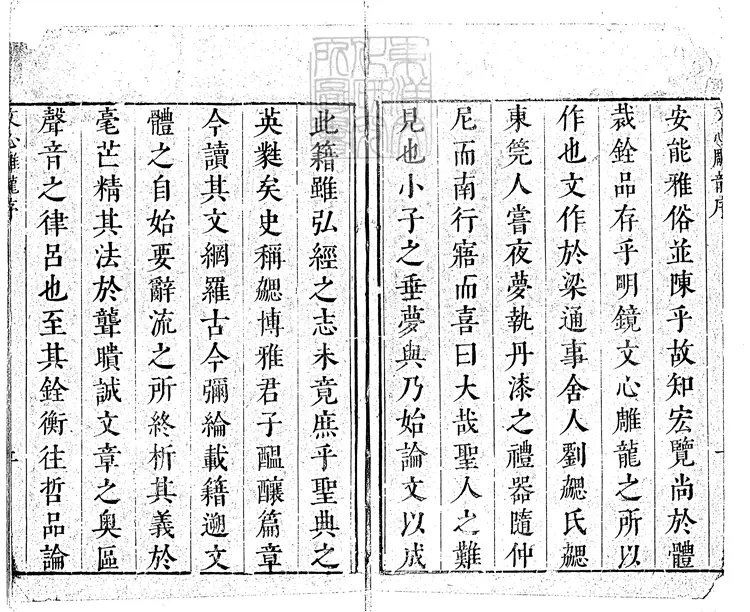 文心雕龍序
安能雅俗並陳乎故知宏覽尚於體
裁銓品存乎明鏡文心雕龍之所以
作也文作於梁通事舍人劉勰氏勰
東筦人嘗夜夢執丹漆之禮器隨仲
尼而南行寤而喜曰大哉聖人之難
見也小子之垂夢與乃始論文以成
此籍雖弘經之志未竟庶乎聖典之
英蕤矣史稱勰博雅君子醞釀篇章
今讀其文網羅古今彌綸載籍遡文
體之自始要辭流之所終析其義於
毫芒精其法於聾聵誠文章之奧區
聲音之律呂也至其銓衡往哲品論
文心雕龍序